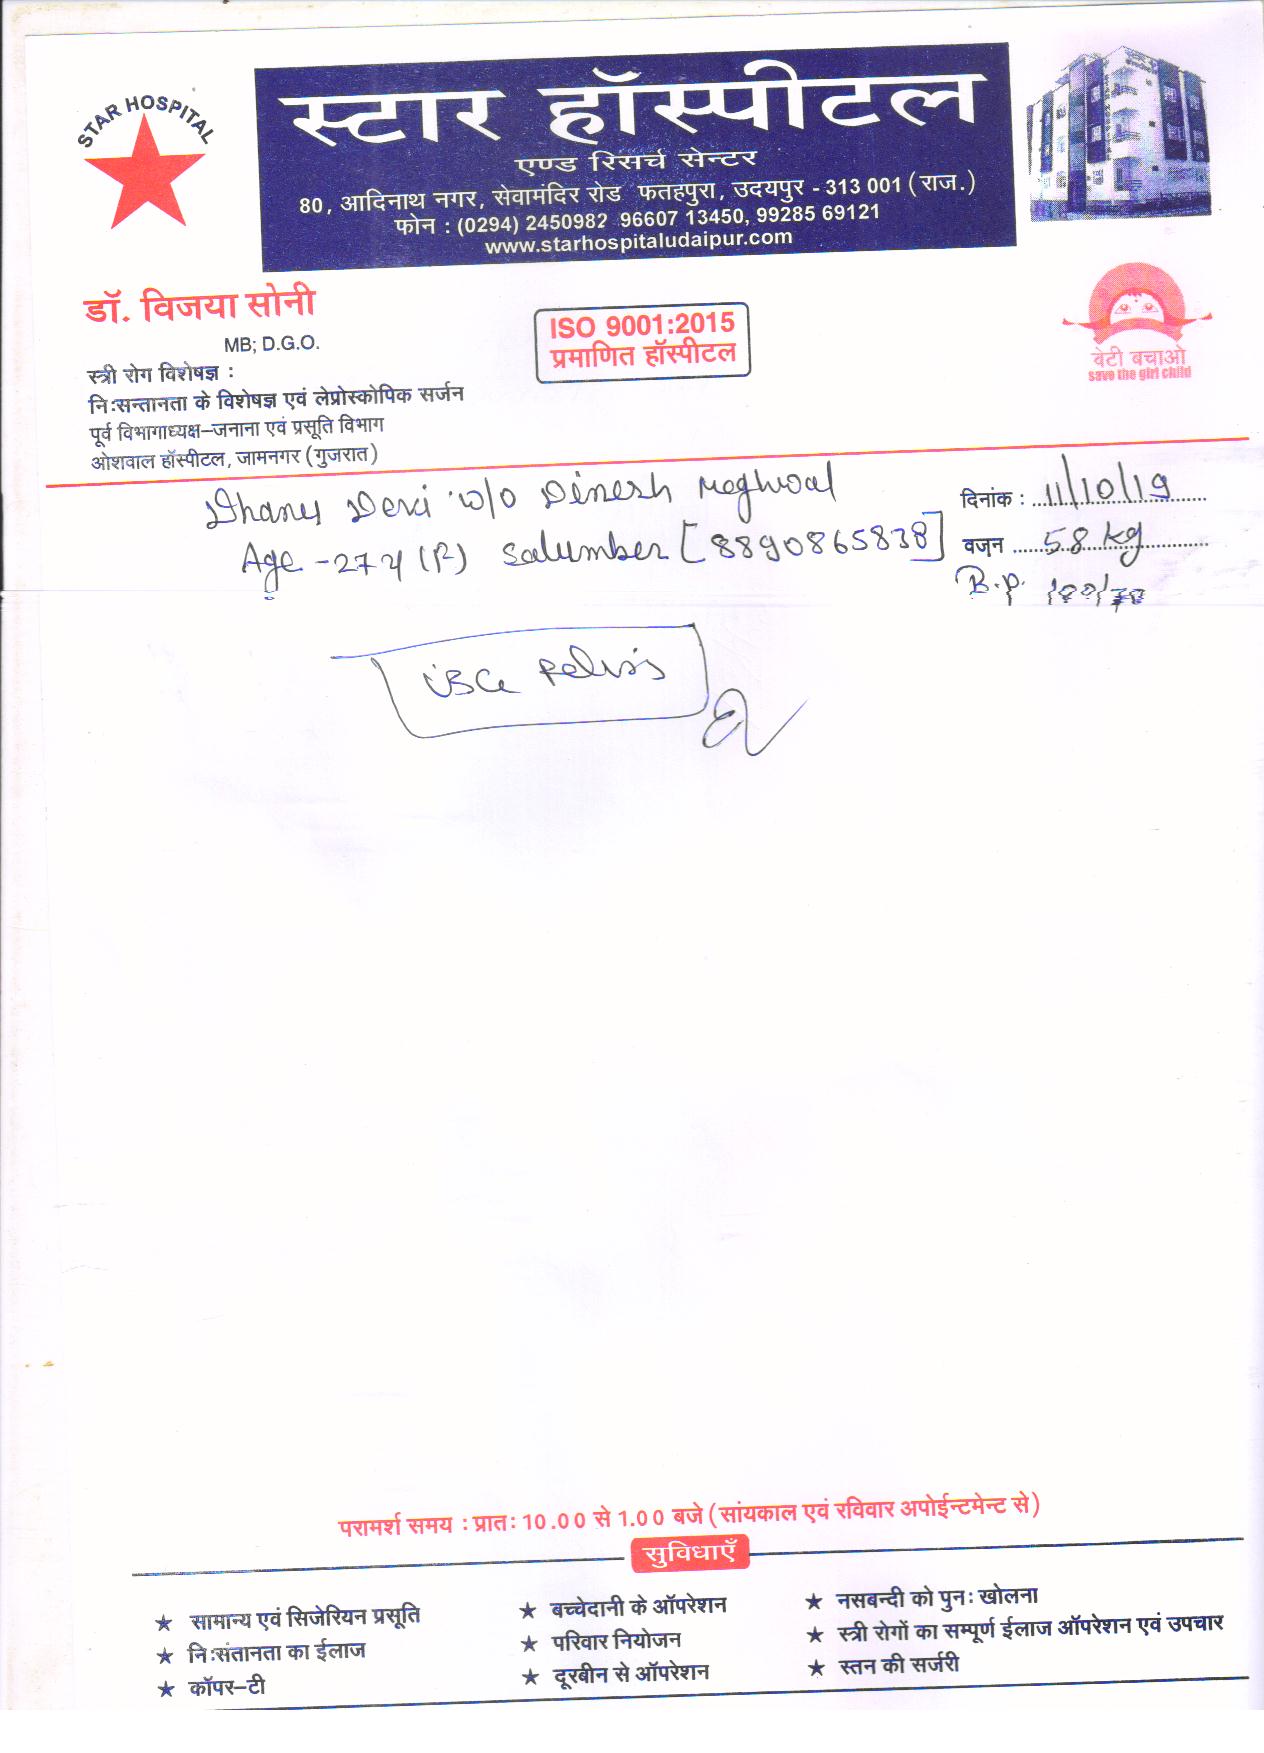 STAR HOSPITAL
स्टार हॉस्पीटल
एण्ड रिसर्च सेन्टर
80, आदिनाथ नगर, सेवामंदिर रोड फतहपुरा, उदयपुर - 313 001 (राज.)
फोन : (0294) 2450982 96607 13450, 99285 69121
www.starhospitaludaipur.com
डॉ. विजया सोनी
MB; D.G.O.
स्त्री रोग विशेषज्ञ :
निःसन्तानता के विशेषज्ञ एवं लेप्रोस्कोपिक सर्जन
पूर्व विभागाध्यक्ष–जनाना एवं प्रसूति विभाग
ओशवाल हॉस्पीटल, जामनगर (गुजरात)
ISO 9001:2015
प्रमाणित हॉस्पीटल
बेटी बचाओ
save the girl child
Devi w/o Dinesh Meghwal
दिनांक : 11/10/19
Age - 27 y (F) Salumber [8890865838]
वजन 58 kg
B.P. 100/70
Pelvis
परामर्श समय : प्रातः 10.00 से 1.00 बजे (सांयकाल एवं रविवार अपोईन्टमेन्ट से)
सुविधाएँ
★ सामान्य एवं सिजेरियन प्रसूति
★ निःसंतानता का ईलाज
★ कॉपर–टी
★ बच्चेदानी के ऑपरेशन
★ परिवार नियोजन
★ दूरबीन से ऑपरेशन
★ नसबन्दी को पुनः खोलना
★ स्त्री रोगों का सम्पूर्ण ईलाज ऑपरेशन एवं उपचार
★ स्तन की सर्जरी